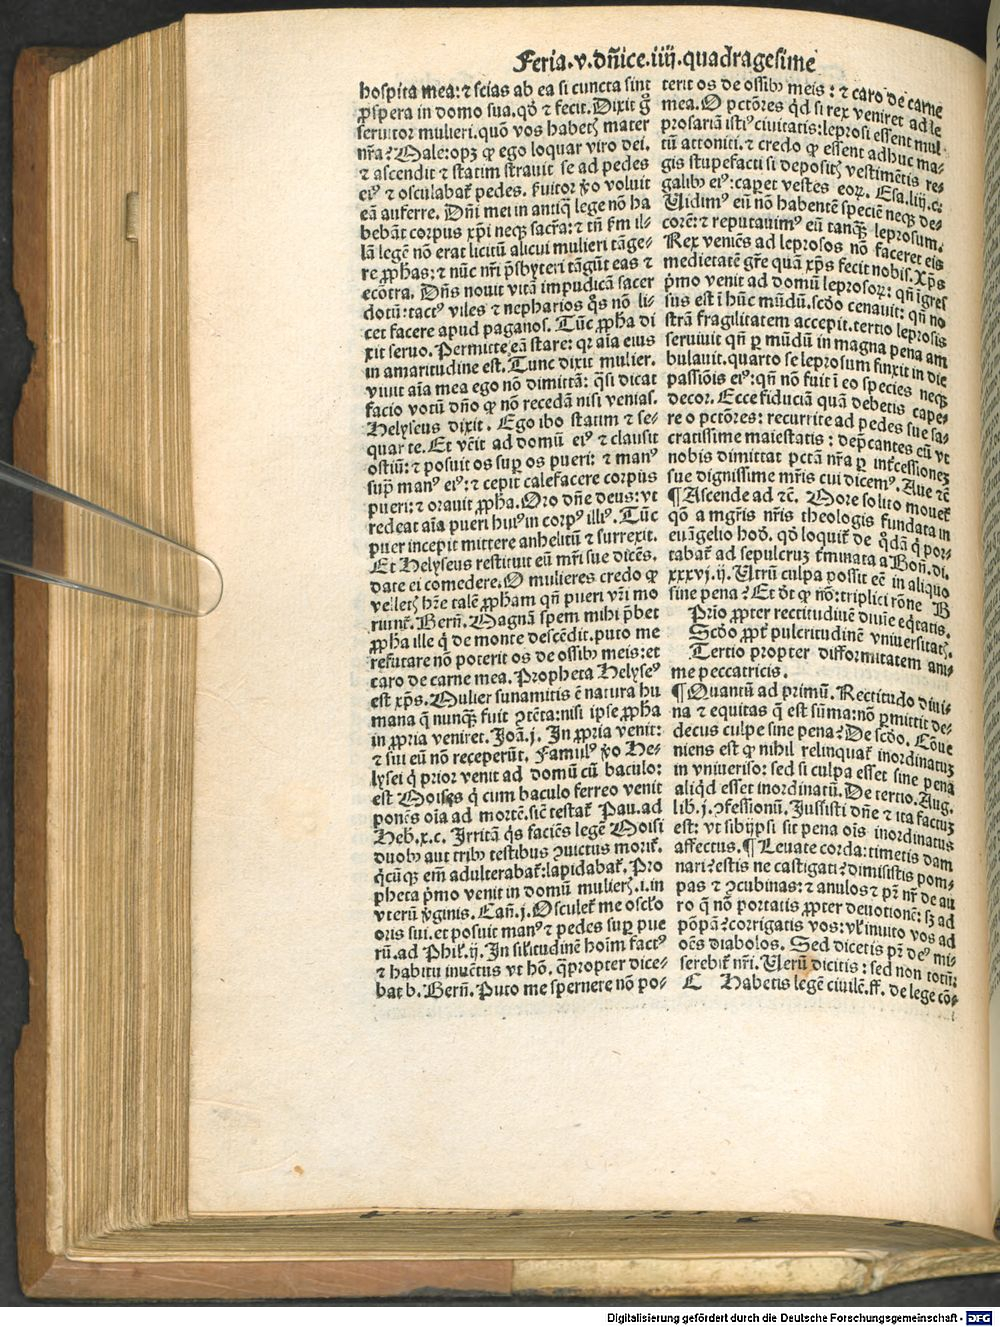 Feria.v.dñice.iiij.quadragesime
hospita mea: ⁊ scias ab ea si cuncta sint
ꝓspera in domo sua. qđ ⁊ fecit. Dixit g̃
seruitor mulieri. quõ vos habetꝭ mater
nr̃a? Male: opꝫ ꝙ ego loquar viro dei.
⁊ ascendit ⁊ statim strauit se ad pedes
eiꝰ ⁊ osculabat̃ pedes. seruitor ꝟo voluit
eã auferre. Dñi mei in antiq̃ lege nõ ha
bebãt corpus xp̃i neqꝫ sacr̃a: ⁊ tñ ẜm il⸗
lã legẽ nõ erat licitũ alicui mulieri tãge⸗
re ꝓphas: ⁊ nũc nr̃i p̃sbyteri tãgũt eas ⁊
ecõtra. Dñs nouit vitã impudicã sacer
dotũ: tactꝰ viles ⁊ nepharios q̃s nõ li⸗
cet facere apud paganos. Tũc ꝓpha di
xit seruo. Permitte eã stare: qr aĩa eius
in amaritudine est. Tunc dixit mulier.
viuit aĩa mea ego nõ dimittã: q̃si dicat
facio votũ dño ꝙ nõ recedã nisi venias.
Helyseus dixit. Ego ibo statim ⁊ se⸗
quar te. Et vẽit ad domũ eiꝰ ⁊ clausit
ostiũ: ⁊ posuit os suꝑ os pueri: ⁊ manꝰ
suꝑ manꝰ eiꝰ: ⁊ cepit calefacere corpus
pueri: ⁊ orauit ꝓpha. Oro dñe deus: vt
redeat aĩa pueri huiꝰ in corpꝰ illiꝰ. Tũc
puer incepit mittere anhelitũ ⁊ surrexit.
Et Helyseus restituit eũ mr̃i sue dicẽs.
date ei comedere. O mulieres credo ꝙ
velletꝭ hr̃e talẽ ꝓpham qñ pueri vr̃i mo
riunt̃. Bern̄. Magnã spem mihi p̃bet
ꝓpha ille q̇ de monte descẽdit. puto me
refutare nõ poterit os de ossibꝰ meis: et
caro de carne mea. Propheta Helyseꝰ
est xp̃s. Mulier sunamitis ẽ natura hu
mana q̃ nunqꝫ̃ fuit ꝯtẽta: nisi ipse ꝓpha
in ꝓpria veniret. Joã.j. In ꝓpria venit:
⁊ sui eũ nõ receperũt. Famulꝰ ꝟo He⸗
lysei q̇ prior venit ad domũ cũ baculo:
est Moises q̇ cum baculo ferreo venit
ponẽs oĩa ad mortẽ. sic̃ testat̃ Pau. ad
Heb̃.x.c. Irritã q̇s faciẽs legẽ Moisi
duobꝰ aut tribꝰ testibus ꝯuictus morit̃.
q̇cũqꝫ em̃ adulterabat̃: lapidabat̃. Pro
pheta p̃mo venit in domũ mulierꝭ .i. in
vterũ ꝟginis. Cañ.j. Osculet̃ me osc̃lo
oris sui. et posuit manꝰ ⁊ pedes suꝑ pue
rũ. ad Phil̃.ij. In sil̃itudinẽ hoĩm factꝰ
⁊ habitu inuẽtus vt hõ. q̃propter dice⸗
bat b. Bern̄. Puto me spernere nõ po⸗
terit os de ossibꝰ meis: ⁊ caro de carne
mea. O pctõres qd̃ si rex veniret ad le
prosariã istiꝰ ciuitatis: leprosi essent mul⸗
tũ attoniti. ⁊ credo ꝙ essent adhuc ma⸗
gis stupefacti si depositꝭ vestimẽtis re⸗
galibꝰ eiꝰ: caperet vestes eoꝝ. Esa.liij.c.
Uidimꝰ eũ nõ habentẽ speciẽ neqꝫ de⸗
corẽ: ⁊ reputauimꝰ eũ tanqꝫ̃ leprosum.
Rex veniẽs ad leprosos nõ faceret eis
medietatẽ gr̃e quã xp̃s fecit nobis. Xp̃s
p̃mo venit ad domũ leprosoꝝ: qñ igres
sus est ĩ hũc mũdũ. scd̃o cenauit: qñ no
strã fragilitatem accepit. tertio leprosis
seruiuit qñ ꝑ mũdũ in magna pena am
bulauit. quarto se leprosum finxit in die
passiõis eiꝰ: qñ nõ fuit ĩ eo species neqꝫ
decor. Ecce fiduciã quã debetis cape⸗
re o pctõres: recurrite ad pedes sue sa⸗
cratissime maiestatis: dep̃cantes eũ vt
nobis dimittat pctã nr̃a ꝑ int̃cessionẽ
sue dignissime mr̃is cui dicemꝰ. Aue ⁊c̃
¶ Ascende ad ⁊c̃. More solito mouet̃
qõ a mgr̃is nr̃is theologis fundata in
euãgelio hod̃. qđ loquit̃ de q̇dã q̇ por⸗
tabat̃ ad sepulcrum t̃minata a Boñ. di.
xxxvj.ij. Utrũ culpa possit eẽ in aliquo
sine pena? Et dr̃ ꝙ nõ: triplici rõne B
Prĩo ꝓpter rectitudinẽ diuĩe eq̃tatis.
Scd̃o ꝓpt̃ pulcritudinẽ vniuersitatꝭ.
Tertio propter difformitatem ani⸗
me peccatricis.
¶ Quantũ ad primũ. Rectitudo diui⸗
na ⁊ equitas q̃ est sũma: nõ ꝑmittit de⸗
decus culpe sine pena? De scd̃o. Cõue
niens est ꝙ nihil relinquat̃ inordinatuꝫ
in vniuerso: sed si culpa esset sine pena
aliqd̃ esset inordinatũ. De tertio. Aug.
lib.j.ꝯfessionũ. Jussisti dñe ⁊ ita factuꝫ
est: vt sibijpsi sit pena oĩs inordinatus
affectus. ¶ Leuate corda: timetis dam
nari? estis ne castigati? dimisistis pom⸗
pas ⁊ ꝯcubinas: ⁊ anulos ⁊ pr̃ nr̃ de au
ro q̃ nõ portatis ꝓpter deuotionẽ: sꝫ ad
põpã? corrigatis vos: vl̃ inuito vos ad
oẽs diabolos. Sed dicetis pr̃ deꝰ mi⸗
serebit̃ nr̃i. Uerũ dicitis: sed non totũ:
C Habetis legẽ ciuilẽ. ff. de lege cõ⸗
Digitalisierung gefördert durch die Deutsche Forschungsgemeinschaft - DFG